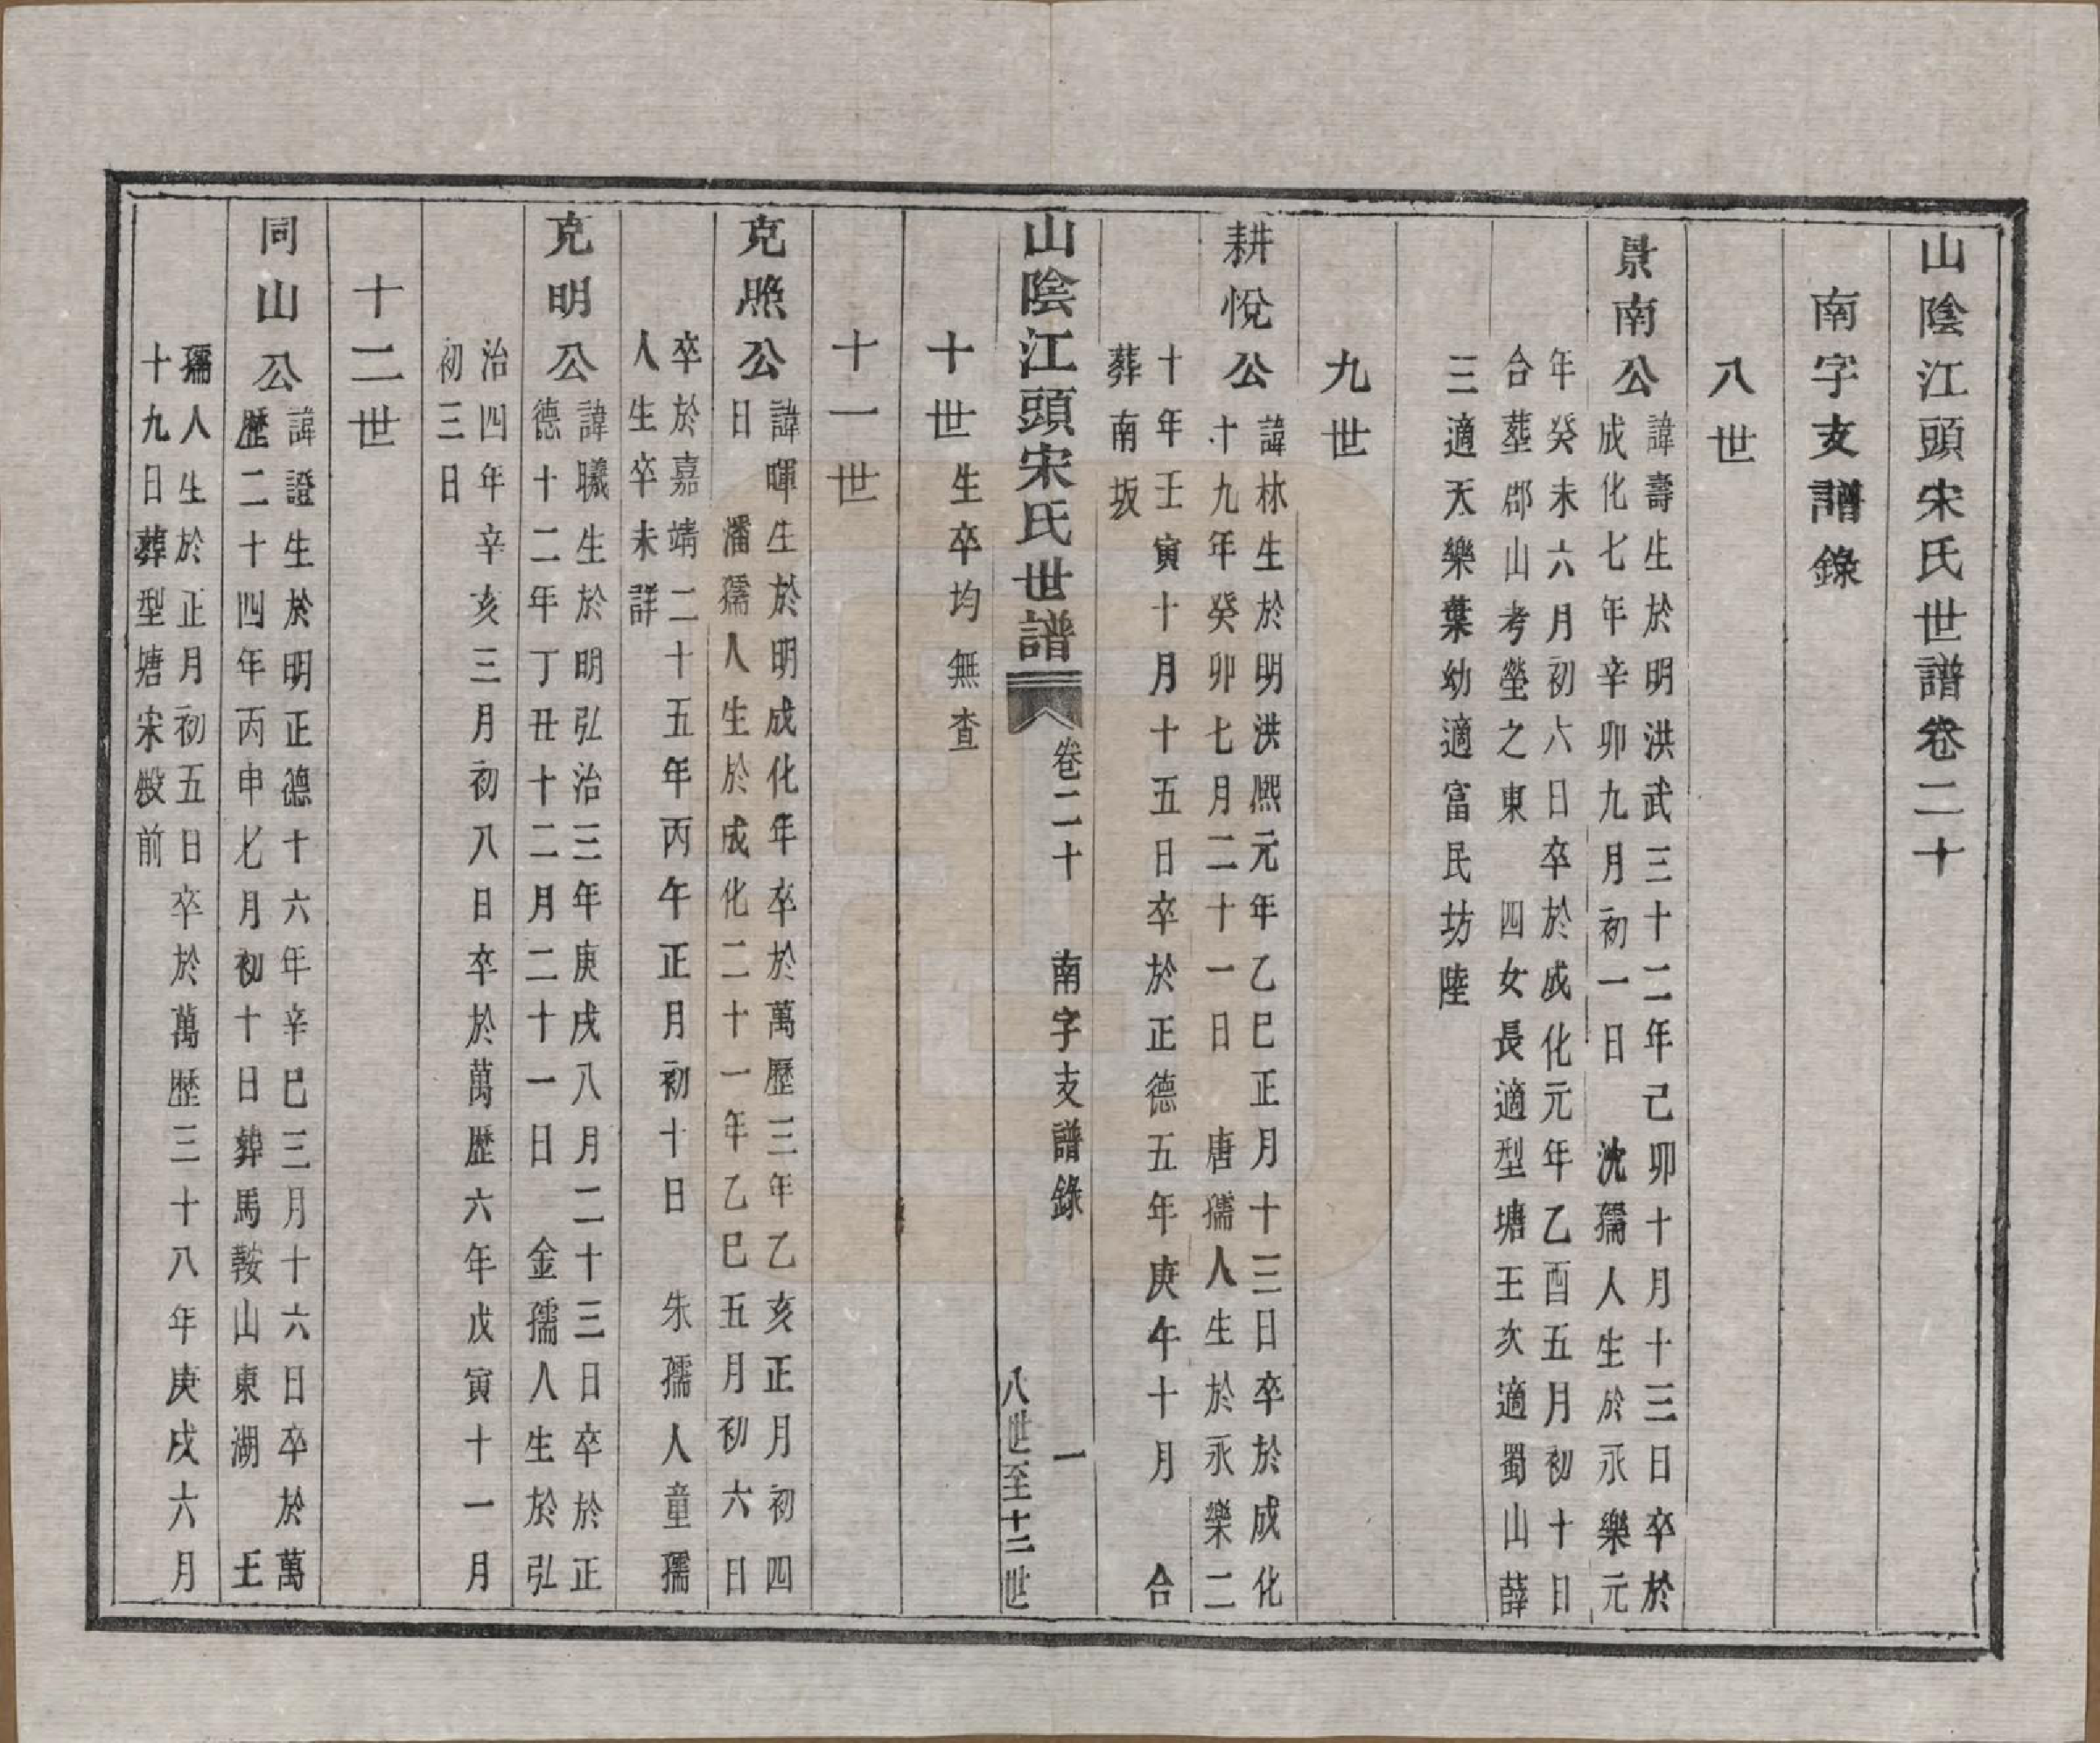 山陰江頭宋氏世譜卷二十
南字支譜錄
八世
景南公
諱壽生於明洪武三十二年己卯十月十三日卒於
成化七年辛卯九月初一日 沈孺人生於永樂元
年癸未六月初六日卒於成化元年乙酉五月初十日
合葬郡山考塋之東 四女長適型塘王次適蜀山薛
三適天樂葉幼適富民坊陸
九世
耕悅公
諱林生於明洪熙元年乙巳正月十三日卒於成化
十九年癸卯七月二十一日 唐孺人生於永樂二
十年壬寅十月十五日卒於正德五年庚午十月 合
葬南坂
山陰江頭宋氏世譜
卷二十 南字支譜錄 一
八世至十二世
十世生卒均無查
十一世
克熙公
諱暉生於明成化年卒於萬歷三年乙亥正月初四
日 潘孺人生於成化二十一年乙巳五月初六日
卒於嘉靖二十五年丙午正月初十日 朱孺人童孺
人生卒未詳
克明公
諱曦生於明弘治三年庚戌八月二十三日卒於正
德十二年丁丑十二月二十一日 金孺人生於弘
治四年辛亥三月初八日卒於萬歷六年戊寅十一月
初三日
十二世
同山公
諱證生於明正德十六年辛巳三月十六日卒於萬
歷二十四年丙申七月初十日葬馬鞍山東湖 王
孺人生於正月初五日卒於萬歷三十八年庚戌六月
十九日葬型塘宋殿前